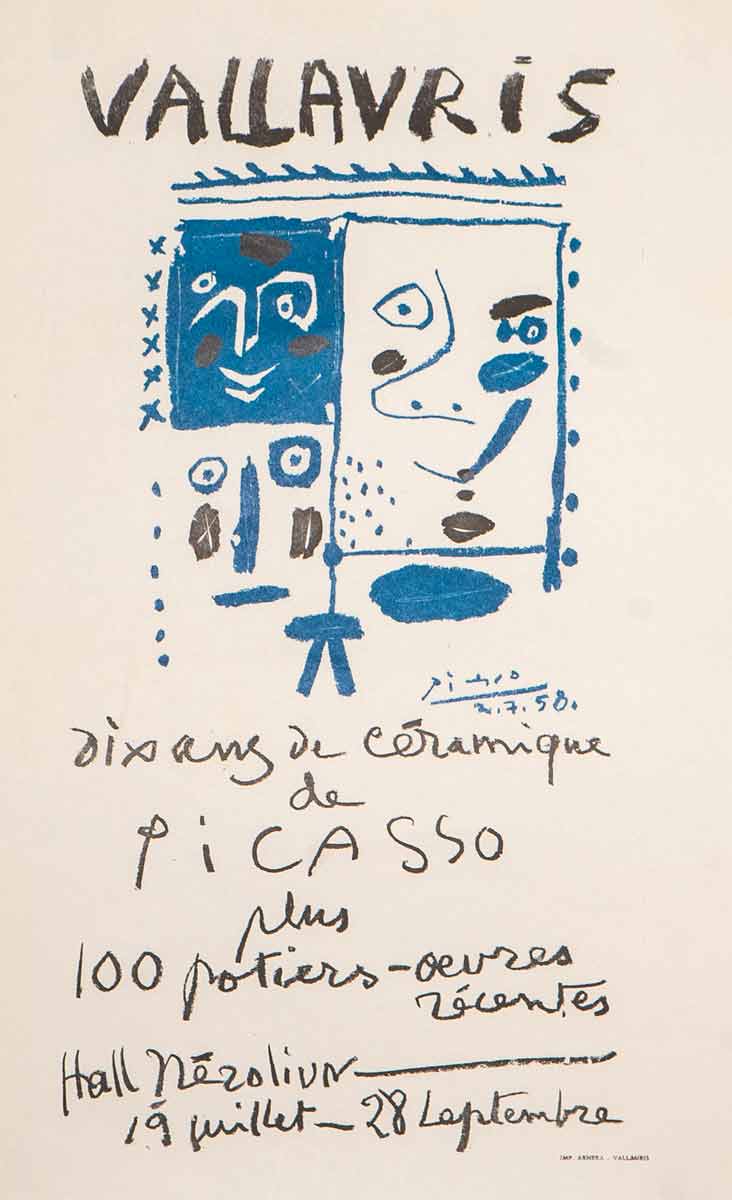 VALLAVRIS
picasso
2.7.58.
dix ans de céramique
de
PiCASSO
plus
100 potiers - oevres
récentes
Hall Nérolium
19 juillet - 28 Septembre
IMP. ARNERA - VALLAURIS